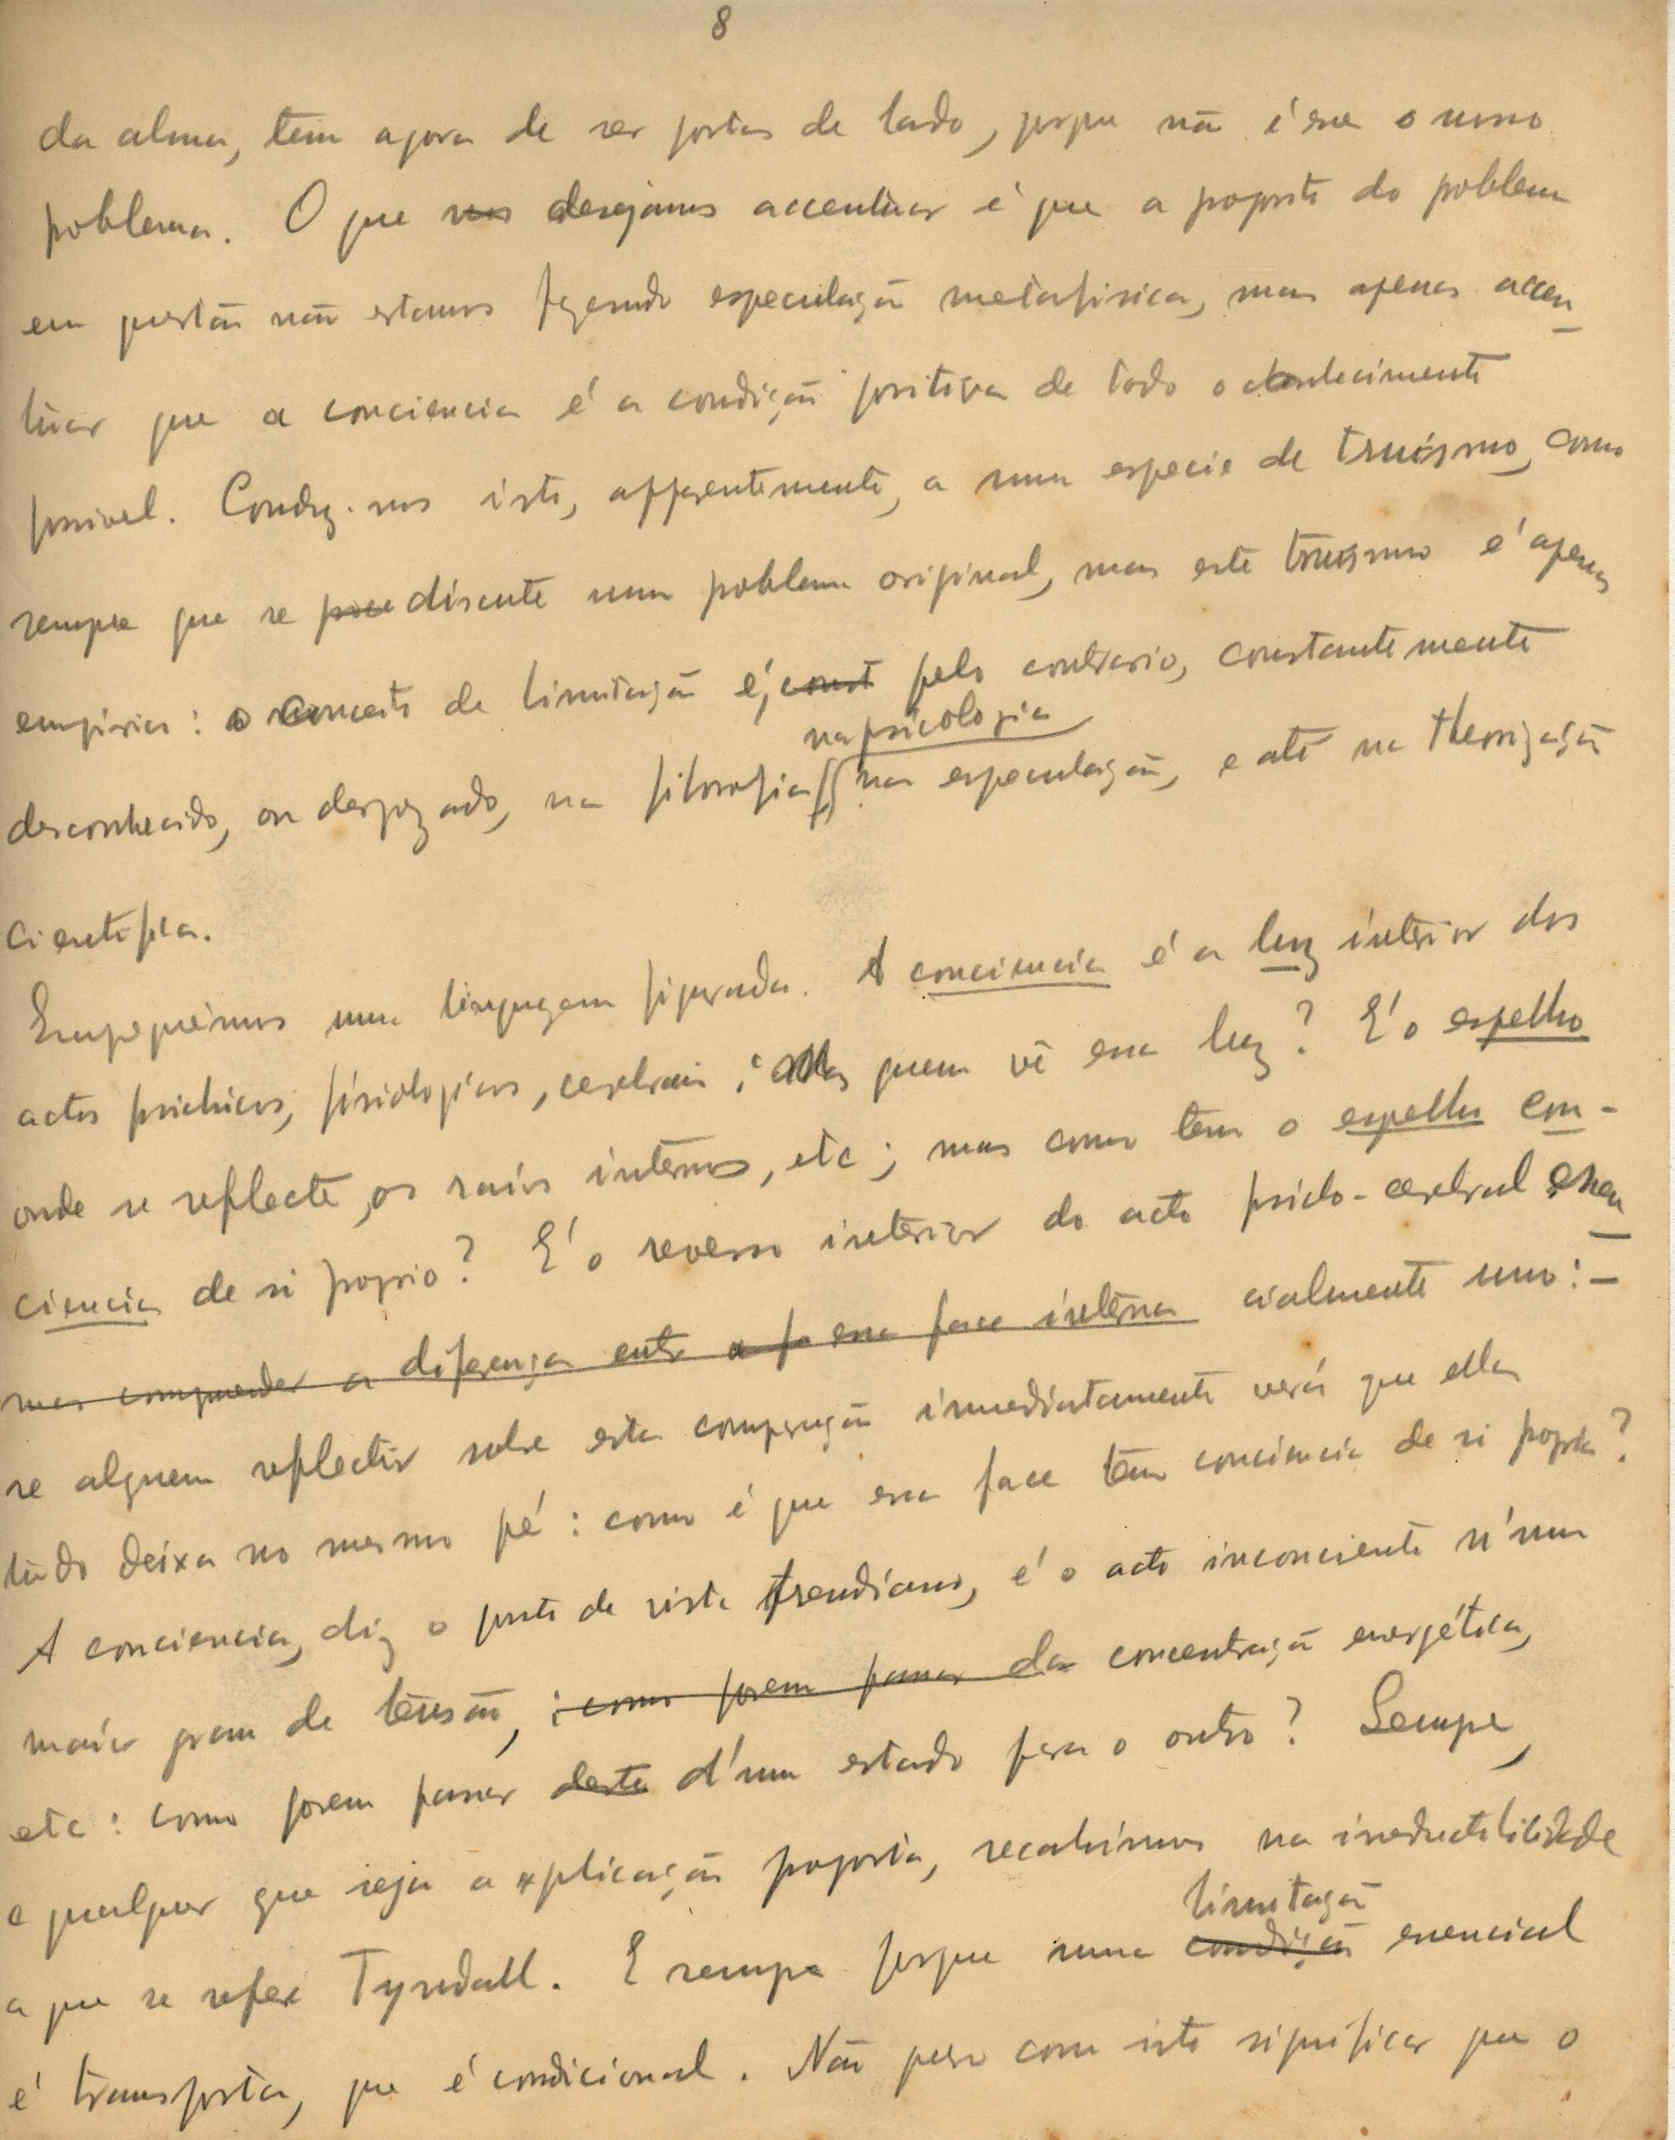 8
da alma, têm agora de ser postas de lado, porque não é esse o nosso
problema. O que nos desejamos accentuar é que a proposito do problema
em questão não estamos fazendo especulação metafisica, mas apenas accen
tuar que a conciencia é a condição positiva de todo o conhecimento
possivel. Conduz-nos isto, apparentemente, a uma especie de truismo, como
sempre que se discute um problema original, mas este truismo é apenas
empirico: o conceito de limitação é, const pelo contrario, constantemente
na psicologia
desconhecido, ou desprezado, na filosofia, na especulação, e até na theorização
cientifica.
Empreguemos uma linguagem figurada. A conciencia é a luz interior dos
actos psichicos, fisiologicos, cerebraes; mas quem vê essa luz? E' o espelho
onde se reflecte, os raios internos, etc; mas como tem o espelho con-
ciencia de si proprio? E' o reverso interior do acto psico-cerebral essen
mas comprender a diferença entre a fa essa face interna cialmente uno: –
se alguem reflectir sobre esta comparação immediatamente verá que ella
tudo deixa no mesmo pé: como é que essa face tem conciencia de si propria?
A conciencia, diz o ponto de vista freudiano, é o acto inconciente n'um
maior grau de tensão, : como porem passar da concentração energética,
etc: como porem passar deste d'um estado para o outro? Sempre,
e qualquer que seja a explicação proposta, recahimos na irreductibilidade
limitação
a que se refere Tyndall. E sempre porque uma condição essencial
é transposta, que é condicional. Não quero com isto significar que o